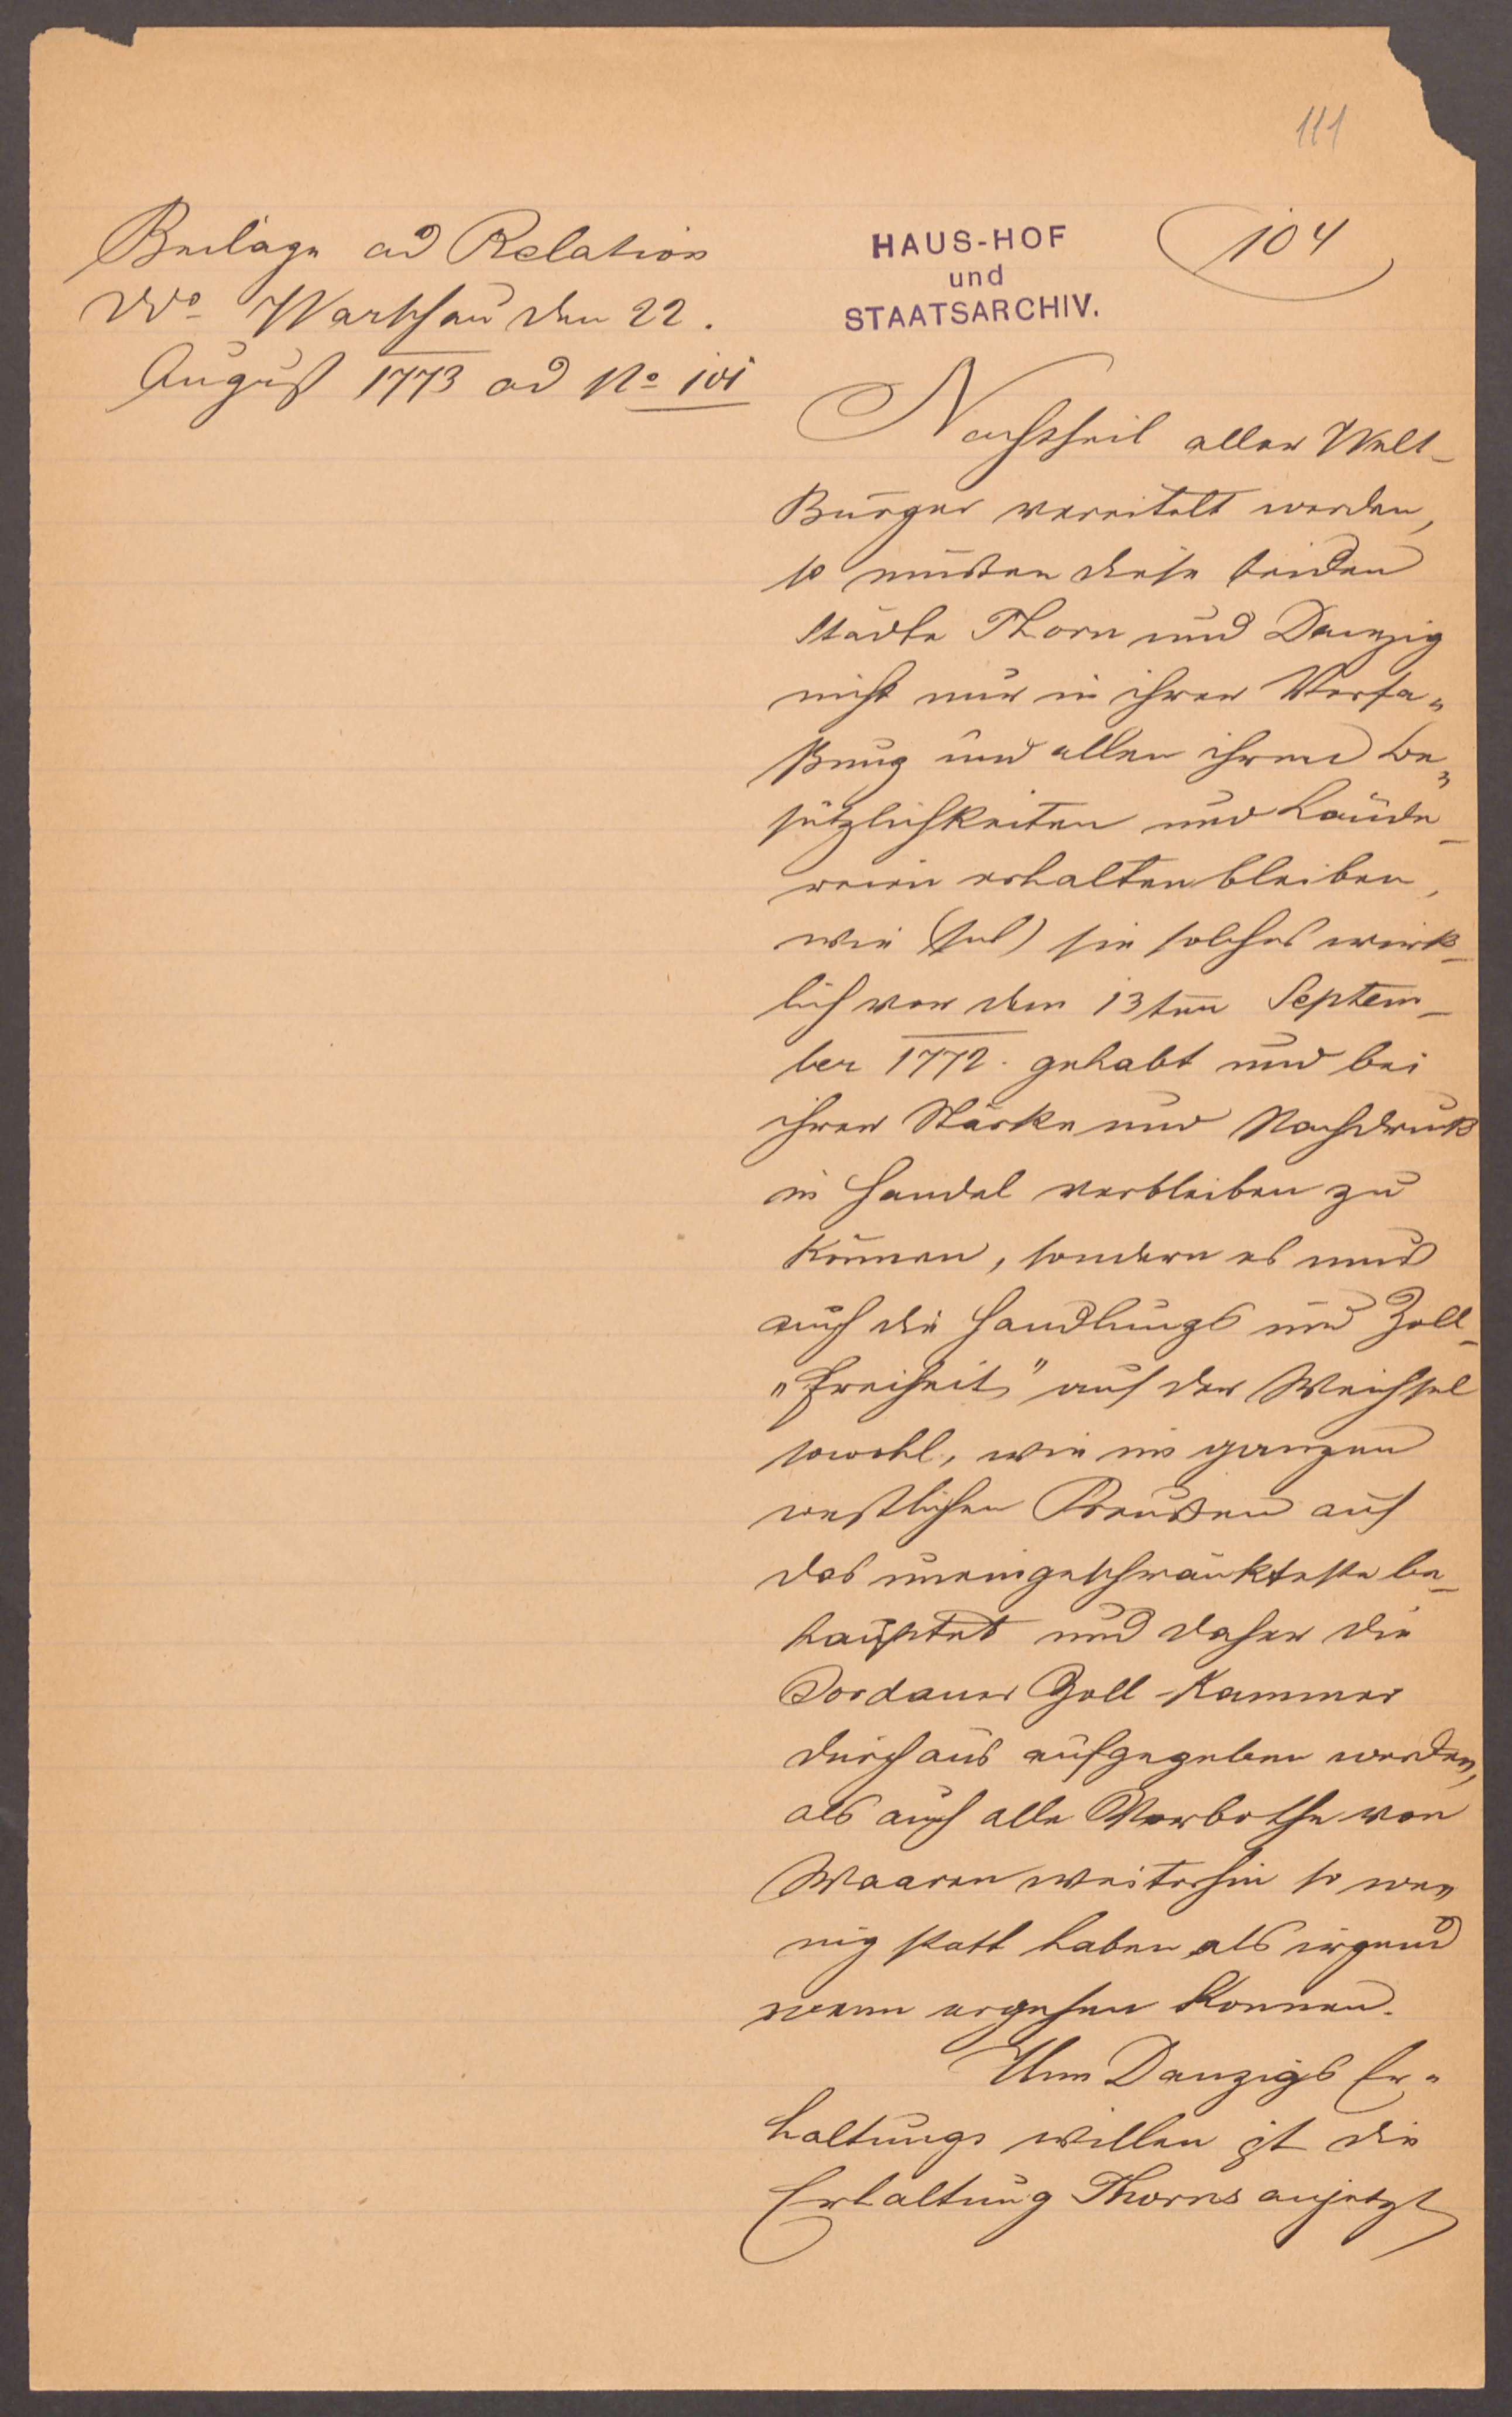 111
Beilage ad Relation
ddo Warschau den 22.
August 1773 ad No 101
HAUS-HOF
und
STAATSARCHIV.
104
Nachtheil aller Welt-
Bürger vereitelt werden,
so müssen diese beiden
Städte Thorn und Danzig
nicht nur in ihrer Verfa-
ßung und allen ihren Be-
sitzlichkeiten und Lände-
reien erhalten bleiben,
wie (sub) sie solches wirk-
lich vor dem 13ten Septem-
ber 1772. gehabt und bei
ihrer Stärke und Nachdruck
in Handel verbleiben zu
können, sondern es muß
auch die Handlungs und Zoll-
"Freiheit" auf der Weichsel
sowohl, wie im ganzen
westlichen Preußen auf
das uneingeschränkteste be-
hauptet und daher die
Fordauer Zoll-Kammer
durchaus aufgegeben werden,
als auch alle Verbothe von
Waaren weiterhin so we-
nig statt haben als irgend
wenn ergehen können.
Um Danzigs Er-
haltungs willen ist die
Erhaltung Thorns anjetzt